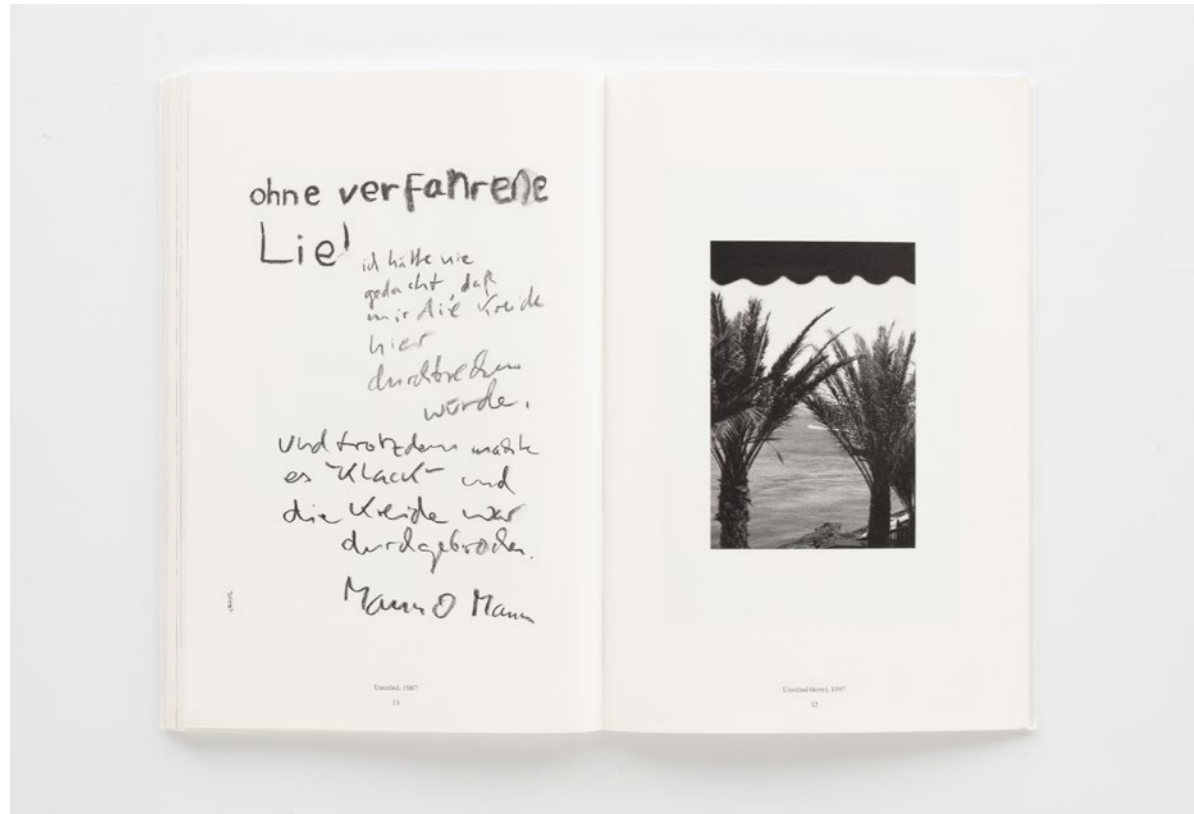 ohne verfahrene
Lie
ich hätte nie
gedacht, daß
mir die Kreide
hier
durchbrechen
würde.
und trotzdem machte
es "Klack" und
die Kreide war
durchgebrochen.
Mann O Mann
Untitled, 1987
13
Untitled 1997
12